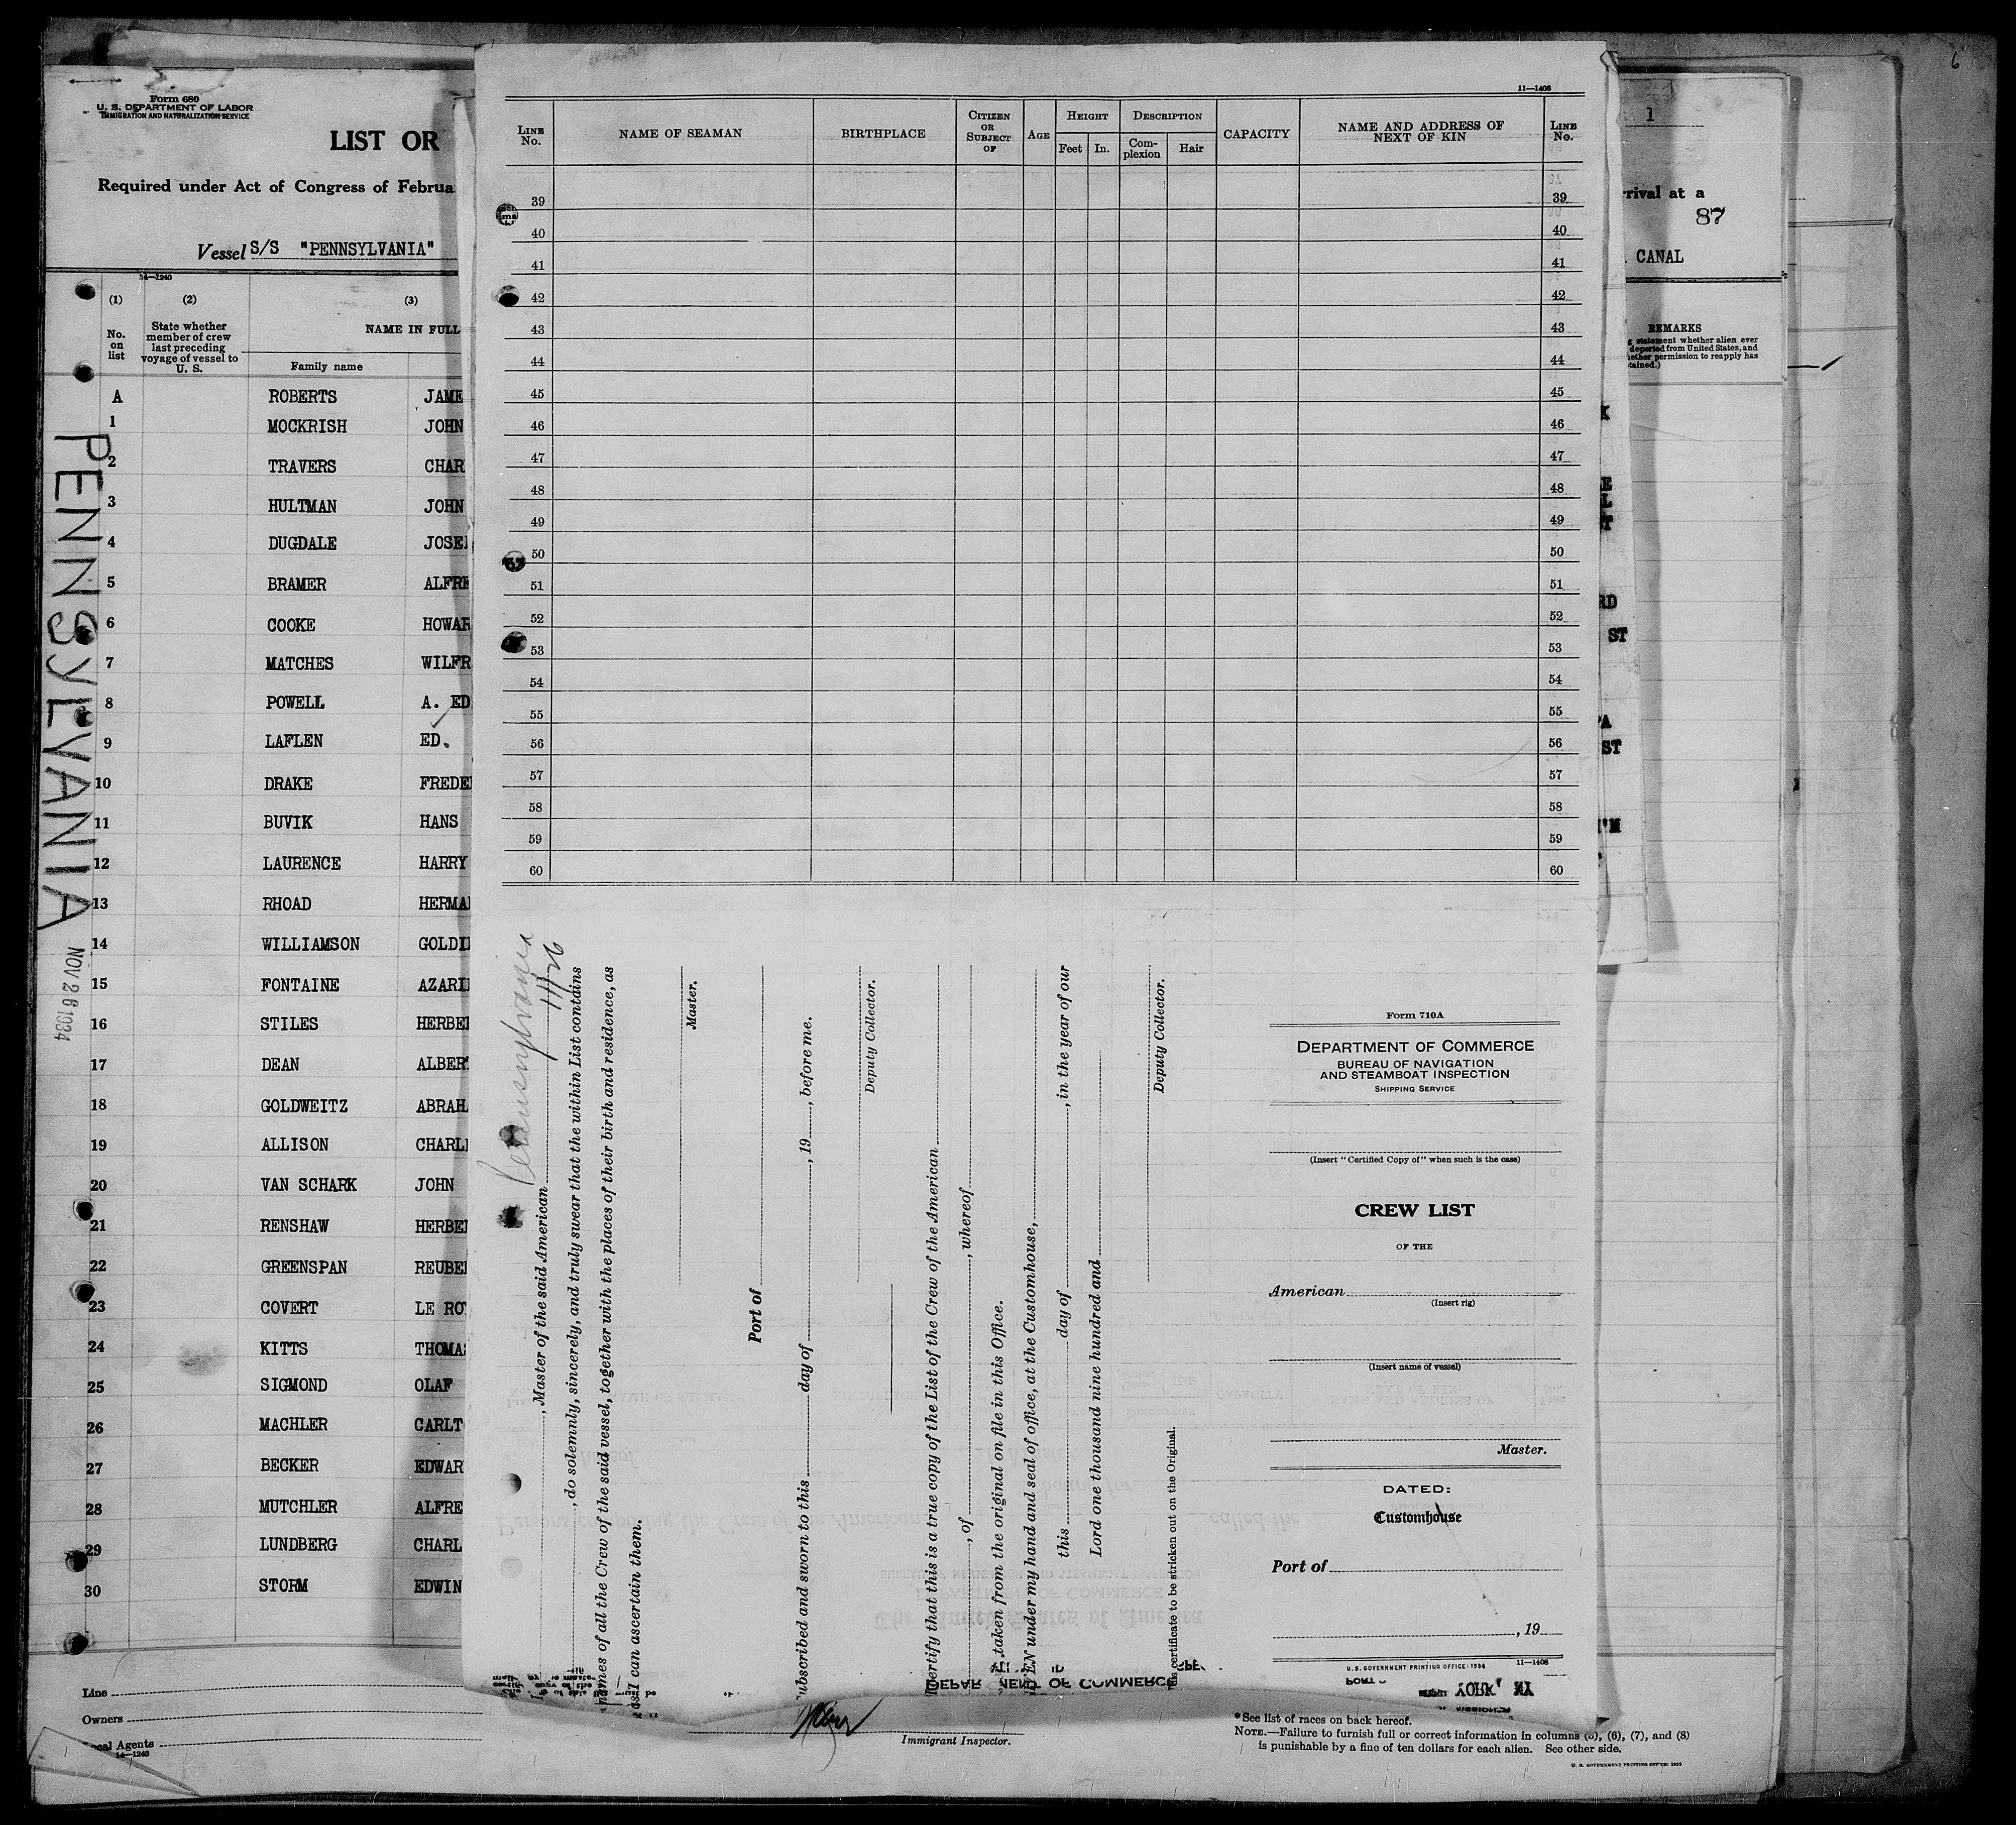 6
Form 680
U. S. DEPARTMENT OF LABOR
IMMIGRATION AND NATURALIZATION SERVICE
LIST OR
Required under Act of Congress of Februa
Vessel S/S "PENNSYLVANIA"
14—1240
(1) (2) (3)
No. on list
State whether member of crew last preceding voyage of vessel to U. S.
NAME IN FULL
Family name
A ROBERTS JAME
1 MOCKRISH JOHN
2 TRAVERS CHAR
3 HULTMAN JOHN
4 DUGDALE JOSE
5 BRAMER ALFRE
6 COOKE HOWAR
7 MATCHES WILFR
8 POWELL A. ED
9 LAFLEN ED.
10 DRAKE FREDE
11 BUVIK HANS
12 LAURENCE HARRY
13 RHOAD HERMA
14 WILLIAMSON GOLDI
15 FONTAINE AZARI
16 STILES HERBE
17 DEAN ALBER
18 GOLDWEITZ ABRAH
19 ALLISON CHARL
20 VAN SCHARK JOHN
21 RENSHAW HERBE
22 GREENSPAN REUBE
23 COVERT LE RO
24 KITTS THOMA
25 SIGMOND OLAF
26 MACHLER CARLT
27 BECKER EDWAR
28 MUTCHLER ALFRE
29 LUNDBERG CHARL
30 STORM EDWIN
PENNSYLVANIA
NOV 26 1934
Line
Owners
cal Agents
14—1240
11—1408
LINE No.
NAME OF SEAMAN
BIRTHPLACE
CITIZEN OR SUBJECT OF
AGE
HEIGHT
Feet In.
DESCRIPTION
Com-plexion Hair
CAPACITY
NAME AND ADDRESS OF NEXT OF KIN
LINE No.
39 39
40 40
41 41
42 42
43 43
44 44
45 45
46 46
47 47
48 48
49 49
50 50
51 51
52 52
53 53
54 54
55 55
56 56
57 57
58 58
59 59
60 60
Pennsylvania
11/26
, Master of the said American
, do solemnly, sincerely, and truly swear that the within List contains
names of all the Crew of the said vessel, together with the places of their birth and residence, as
as I can ascertain them.
Master.
Port of
ubscribed and sworn to this day of , 19 , before me.
Deputy Collector.
ertify that this is a true copy of the List of the Crew of the American
, of , whereof
, taken from the original on file in this Office.
EN under my hand and seal of office, at the Customhouse,
this day of , in the year of our
Lord one thousand nine hundred and
Deputy Collector.
certificate to be stricken out on the Original.
Form 710A
DEPARTMENT OF COMMERCE
BUREAU OF NAVIGATION
AND STEAMBOAT INSPECTION
SHIPPING SERVICE
(Insert "Certified Copy of" when such is the case)
CREW LIST
OF THE
American
(Insert rig)
(Insert name of vessel)
Master.
DATED:
Customhouse
Port of
, 19
U. S. GOVERNMENT PRINTING OFFICE: 1934 11—1408
Immigrant Inspector.
* See list of races on back hereof.
NOTE.—Failure to furnish full or correct information in columns (5), (6), (7), and (8)
is punishable by a fine of ten dollars for each alien. See other side.
1
rival at a
87
CANAL
REMARKS
statement whether alien ever
deported from United States, and
permission to reapply has
tained.)
RD
ST
ST